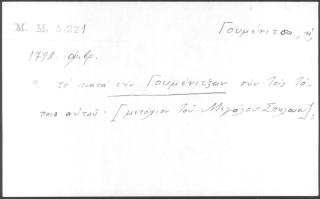 Μ. Μ. 5.221
Γουμένιτσα, ἡ
1798. φεβρ.
" τὸ κατὰ τὴν Γουμένιτζαν σὺν τοῖς τό-
ποις αὐτοῦ. [μετόχιον τοῦ Μεγάλου Σπηλαίου]